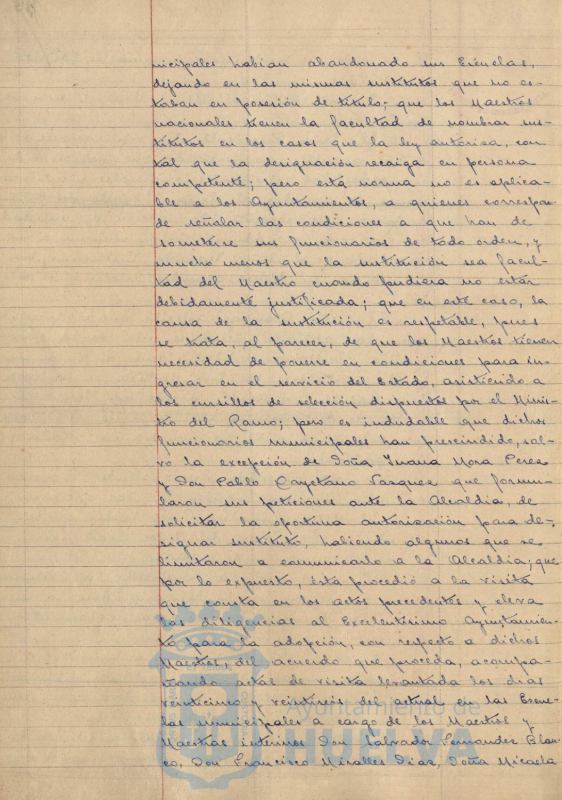 nicipales habian abandonado sus Escuelas,
dejando en las mismas sustitutos que no es-
taban en posesión de título; que los Maestros
nacionales tienen la facultad de nombrar sus-
titutos en los casos que la ley autoriza, con
tal que la designación recaiga en persona
competente; pero esta norma no es aplica-
ble a los Ayuntamientos, a quienes correspon-
de señalar las condiciones a que han de
someterse sus funcionarios de todo orden, y
mucho menos que la sustitución sea facul-
tad del Maestro cuando pudiera no estar
debidamente justificada; que en este caso, la
causa de la sustitución es respetable, pues
se trata, al parecer, de que los Maestros tienen
necesidad de ponerse en condiciones para in-
gresar en el servicio del Estado, asistiendo a
los cursillos de selección dispuestos por el Minis-
tro del Ramo; pero es indudable que dichos
funcionarios municipales han prescindido, sal-
vo la excepción de Doña Juana Mora Perez
y Don Pablo Cayetano Vazquez que formu-
laron sus peticiones ante la Alcaldia, de
solicitar la oportuna autorización para de-
signar sustituto, habiendo algunos que se
limitaron a comunicarlo a la Alcaldia; que
por lo expuesto, ésta procedió a la visita
que consta en los actos precedentes y eleva
las diligencias al Excelentísimo Ayuntamien-
to para la adopción, con respecto a dichos
Maestros, del acuerdo que proceda, acompa-
ñando actas de visita levantada los dias
veinticinco y veintiseis del actual en las Escue-
las municipales a cargo de los Maestros y
Maestras interinos Don Salvador Fernandez Blan-
co, Don Francisco Miralles Diaz, Doña Micaela
Ayuntamiento de
HUELVA